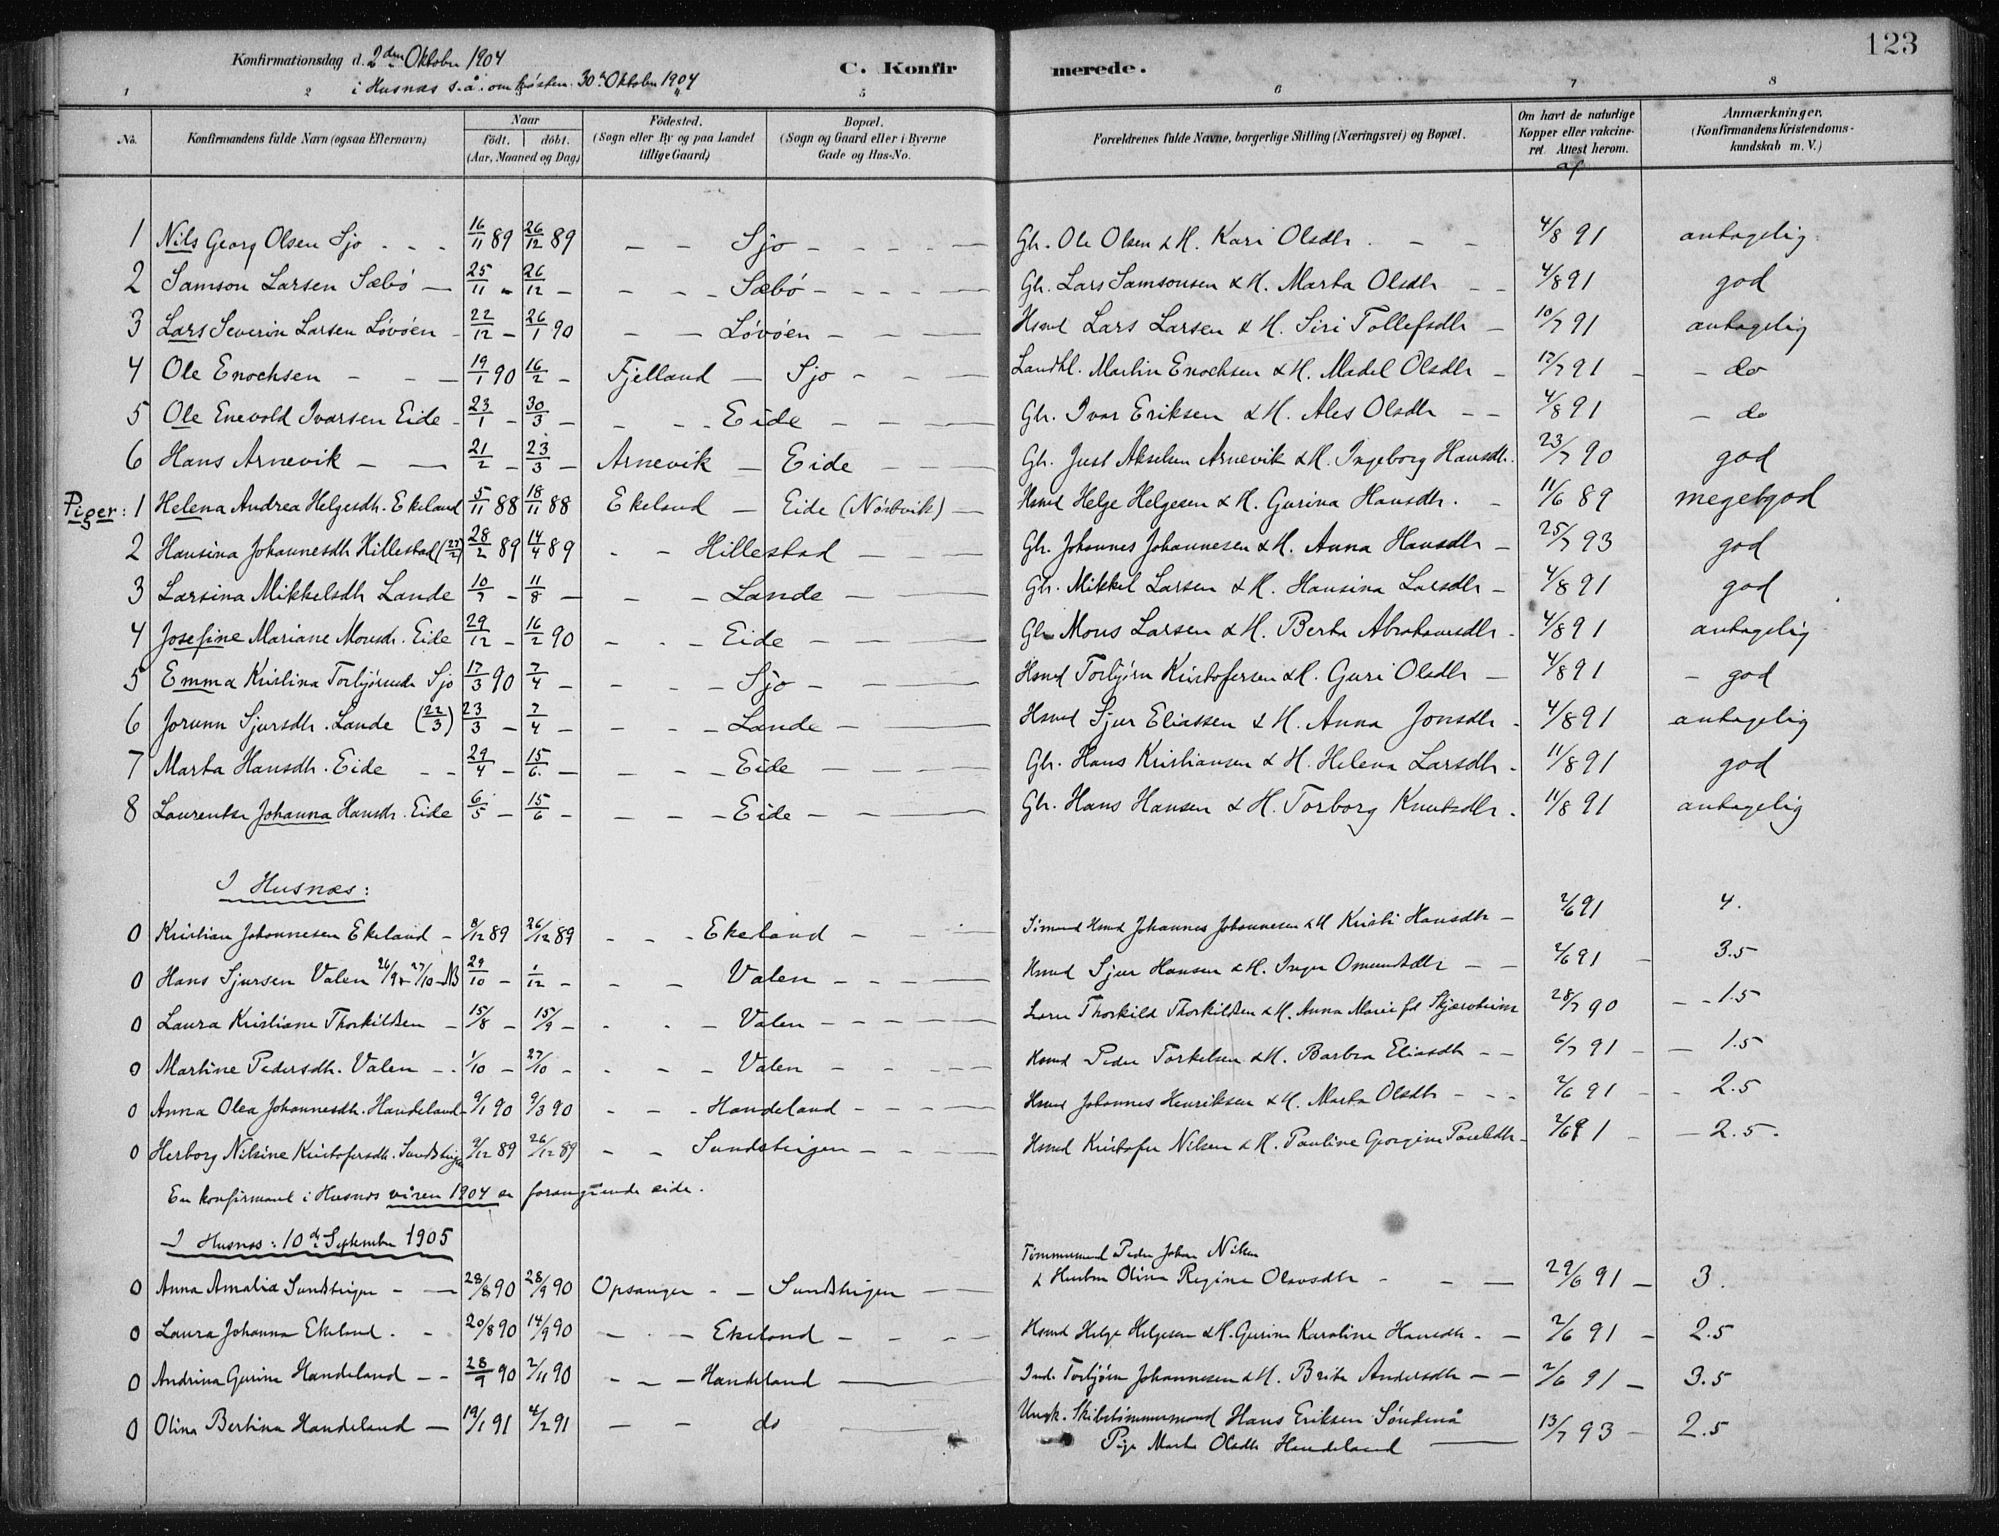 123
Konfirmationsdag d. 2den Oktober 1904
i Husnæs s.å. om hösten 30te Oktober 1904
C. Konfirmerede.
1 2 4 5 6 7 8
No. Konfirmandens fulde Navn (ogsaa Efternavn) Naar födt. döbt. (Aar, Maaned og Dag) Födested. (Sogn eller By og paa Landet tillige Gaard) Bopæl. (Sogn og Gaard eller i Byerne Gade og Hus-No. Forældrenes fulde Navne, borgerlige Stilling (Næringsvei) og Bopæl. Om havt de naturlige Kopper eller vakcineret. Attest herom. Anmærkninger. (Konfirmandens Kristendomskundskab m. V.)
1 Nils Georg Olsen Sjo - - - 16/11 89 26/12 89 - - Sjo - - - - Gbr. Ole Olsen & H. Kari Olsdtr. - - 4/8 91 antagelig
2 Samson Larsen Sæbö - 25/11 - 26/12 - - - - Sæbö - - - - Gbr. Lars Samsonsen & H. Marta Olsdtr - - 4/8 91 god
3 Lars Severin Larsen Lövöen - 22/12 - 26/1 90 - - Lövöen - - - Hsmd Lars Larsen & H. Siri Tollefsdtr - 10/7 91 antagelig
4 Ole Enochsen - - - 19/1 90 16/2 - Fjelland - Sjo - - - Landhl. Martin Enochsen & H. Madel Olsdtr - 17/7 91 - - do
5 Ole Enevold Ivarsen Eide - 23/1 - 30/3 - - - - Eide - - - Gbr. Ivar Eriksen & H. Ales Olsdtr - - 4/8 91 - do
6 Hans Arnevik - - 21/2 - 23/3 - Arnevik - Eide - - - Gbr. Just Akselsen Arnevik & H. Ingeborg Hansdtr. 23/7 90 god
Piger: 1 Helena Andrea Helgesdtr. Ekeland 5/11 88 18/11 88 Ekeland - Eide (Nörtvik) - Hsmd Helge Helgesen & H. Gurina Hansdtr. - 11/6 89 meget god
2 Hansina Johannesdtr Hillestad (27/2) 28/2 89 14/4 89 - - Hillestad - - - Gbr. Johannes Johannesen & H. Anna Hansdtr - 25/7 93 god
3 Larsina Mikkelsdtr Lande 10/7 - 11/8 - - - Lande - - Gbr. Mikkel Larsen & H. Hansina Larsdtr - 4/8 91 god
4 Josefine Mariane Monsdtr. Eide 29/12 - 16/2 90 - - - Eide - - Gbr Mons Larsen & H. Berta Abrahamsdtr - 4/8 91 antagelig
5 Emma Kristina Torbjörnsdtr Sjo 17/3 90 7/4 - - - - Sjo - - Hsmd Torbjörn Kristofersen & H. Guri Olsdtr - 4/8 91 - god
6 Jorunn Sjursdtr. Lande (22/3) 23/3 - 7/4 - - - - Lande - - Hsmd Sjur Eliassen & H. Anna Jonsdtr - 4/8 91 antagelig
7 Marta Hansdtr. Eide - - 29/4 - 15/6. - - - - Eide - - Gbr. Hans Kristiansen & H. Helena Larsdtr - 11/8 91 god
8 Laurentse Johanna Hansdr. Eide 6/5 - 15/6 - - - - Eide - - Gbr. Hans Hansen & H. Torborg Knutsdtr. 11/8 91 antagelig
I Husnæs:
0 Kristian Johannesen Ekeland - 8/12 89 26/12 89 - - - Ekeland - - - Hsmd Johannes Johannesen & H Kristi Hansdtr - 2/6 91 4.
0 Hans Sjursen Valen 26/9 + 27/10 - NB 29/10 - 1/12 - - - Valen - - - Hsmd Sjur Hansen & H. Inger Omundsdtr - - 2/6 91 - 3.5
0 Laura Kristiane Thorkildsen - 15/8 - 15/9 - - - - Valen - - - - Lærer Thorkild Thorkildsen & H. Anna Marie fd Skjærsheim 28/7 90 - - 1.5
0 Martine Pedersdtr. Valen - . 1/10 - 27/10 - - - - Valen - - - - Hsmd Peder Torkelsen & H. Barbra Eliasdtr - - 6/7 91 - - 1.5
0 Anna Olea Johannesdtr. Handeland 9/1 90 9/3 90 - - - Handeland - - - - Hsmd Johannes Henriksen & H. Marta Olsdtr - - - 2/6 91 - - 2.5
0 Herborg Nilsine Kristofersdtr. Sundstrigen 2/12 89 26/12 89 - - Sundstrigen - - - - Hsmd Kristofer Nilsen & H. Pauline Georgine Paulsdtr - 2/6 91 - - 2.5.
En konfirmant i Husnæs våren 1904 se forangående side.
I Husnæs: 10de September 1905
0 Anna Amalia Sundstrigen - - 28/8 90 28/9 90 Opsanger - - Sundstrigen - - Tömmermand Peder Johan Nilsen
& Hustru Olina Regine Olavsdtr - - - 29/6 91 - 3.
0 Laura Johanna Ekeland. - 20/8 90 14/9 90 - - - Ekeland - - - - Hsmd Helge Helgesen & H. Gurina Karoline Hansdtr. - - 2/6 91 - 2.5
0 Andrina Gurine Handeland - - 28/9 90 2/11 90 - - - Handeland - Ind. Torbjörn Johannesen & H. Brita Andersdtr - - 2/6 91 - 3.5
0 Olina Bertina Handeland - 19/1 91 4/2 91 - - do - Ungk. Skibstömmermand Hans Eriksen Söndenå
Pige Marta Olsdtr Handeland - 13/7 93 - 2.5